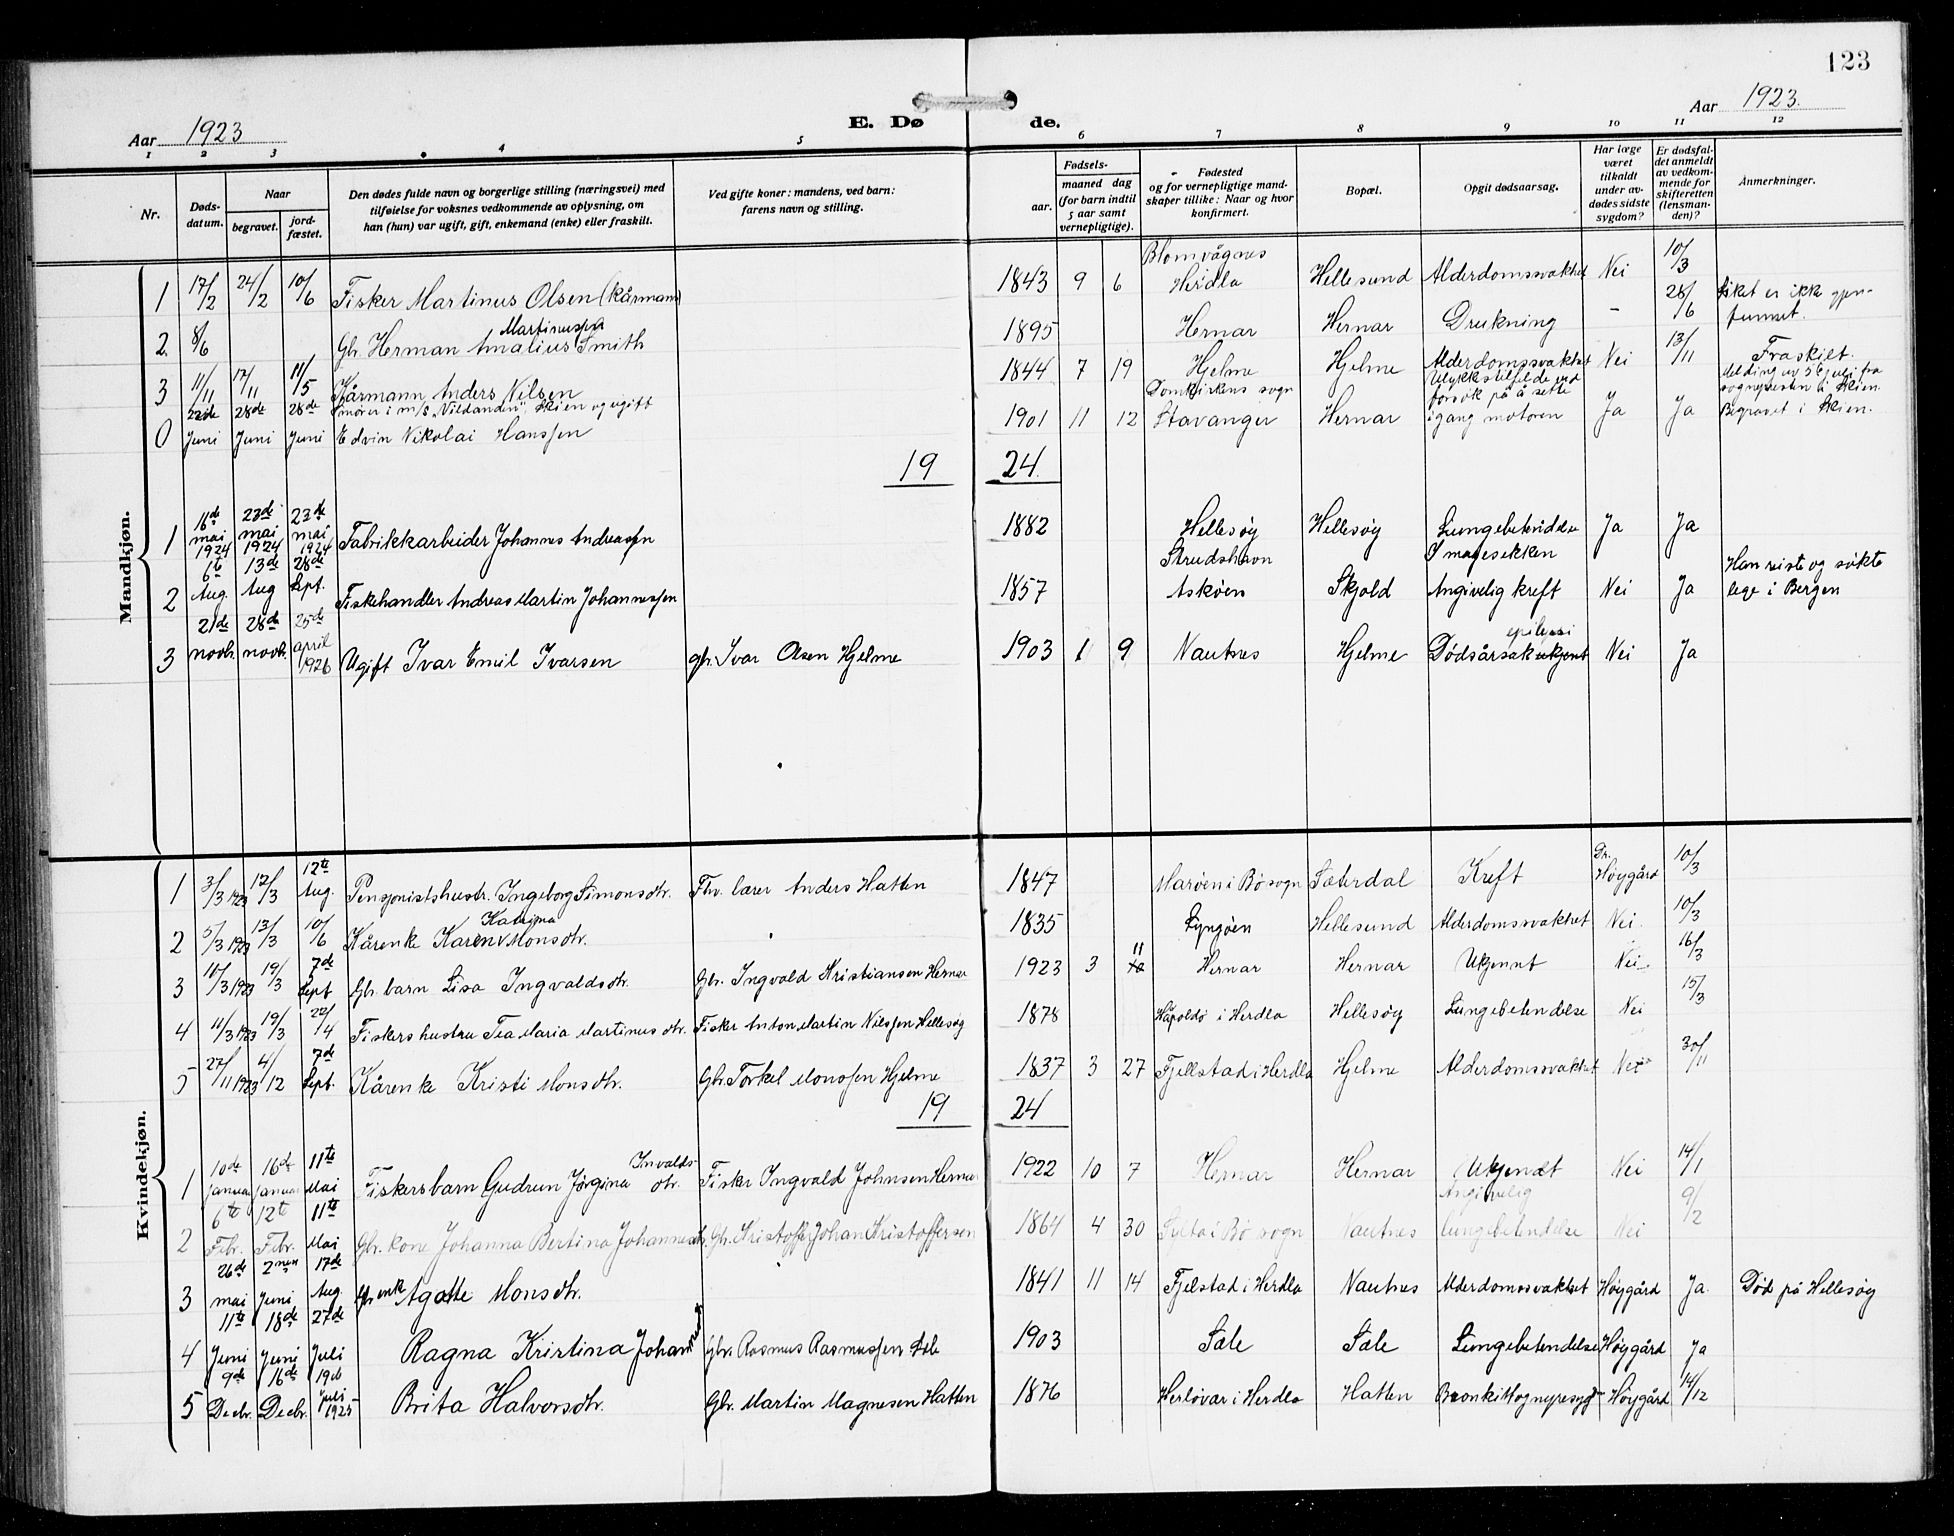 123
Aar 1923
E. Døde.
Aar 1923.
1 2 3 4 5 6 7 8 9 10 11 12
Nr.
Døds-datum.
Naar
begravet.
jord-fæstet.
Den dødes fulde navn og borgerlige stilling (næringsvei) med
tilføielse for voksnes vedkommende av oplysning, om
han (hun) var ugift, gift, enkemand (enke) eller fraskilt.
Ved gifte koner: mandens, ved barn:
farens navn og stilling.
Fødsels-
aar.
maaned dag
(for barn indtil
5 aar samt
vernepligtige).
Fødested
og for vernepligtige mand-
skaper tillike: Naar og hvor
konfirmert.
Bopæl.
Opgit dødsaarsag.
Har læge
været
tilkaldt
under av-
dødes sidste
sygdom?
Er dødsfal-
det anmeldt
av vedkom-
mende for
skifteretten
(lensman-
den)?
Anmerkninger.
Mandkjøn.
1 17/2 24/2 10/6 Fisker Martinus Olsen (Kårmann) 1843 9 6 Blomvågnes Herdla Hellesund Alderdomssvakhet Nei 10/3
2. 8/6 Gb. Herman Amalius Martinussen Smith 1895 Hernar Hernar Drukning - 28/6 Liket er ikke gjen-funnet.
3 11/11 17/11 11/5 Kjårmann Anders Nilsen 1844 7 19 Hjelme Hjelme Alderdomssvakhet Nei 13/11 Fraskilt.
0 22de Juni 28de Juni 28de Juni Smører i m/s "Vildanden", Skien og ugift Edvin Nikolai Hanssen 1901 11 12 Domkirkens sogn Stavanger Hernar Ulykkestilfelde ved forsøk på å sette igang motoren Ja Ja Melding av 5 6 juli fra sognepresten i Skien. Begravet i Skien.
19 24.
1 16de mai 1924 23de mai 1924 23de mai 1924 Fabrikkarbeider Johannes Andreassen 1882 Hellesøy Hellesøy Lungebetendelse Ja Ja
2 6te Aug. 13de Aug 28de Sept. Fiskehandler Andreas Martin Johannessen 1857 Strudshavn Askøen Skjold I magesekken Angivelig kreft Nei Ja Han reiste og søkte lege i Bergen
3 21de novbr. 28de novbr. 25de april 1926 Ugift Ivar Emil Ivarsen gbr. Ivar Olsen Hjelme 1903 1 9 Nautnes Hjelme Dødsårsak ukjent epilepsi Nei Ja
Kvindekjøn.
1 3/3 1923 12/3 12te Aug. Pensjonistshustr. Ingeborg Simonsdtr. Fhv. lærer Anders Hatten 1847 Marøen i Bø sogn Sæterdal Kreft Dr. Høygård 10/3
2 5/3 1923 13/3 10/6 Kårenke Karen Katrina Monsdtr. 1835 Lyngøen Hellesund Alderdomssvakhet Nei. 10/3
3 11/3 1923 19/3 7de Sept Gbr. barn Lisa Ingvaldsdtr. Gbr. Ingvald Kristiansen Hernar 1923 3 11 Hernar Hernar Ukjennt Nei 16/3
4 11/3 1923 19/3 22/4 Fiskershustru Tea Maria Martinusdtr. Fisker Anton Martin Nilssen Hellesøy 1878 Håpoldø i Herdla Hellesøy Lungebetendelse Nei 15/3
5 27/11 1923 4/12 7de Sept. Kårenke Kristi Monsdtr. Gbr. Torkel Monssen Hjelme 1837 3 27 Fjellstad i Herdla Hjelme Alderdomssvakhet Nei 30/11
19 24
1 10de januar 16de januar 11te Mai Fiskersbarn Gudrun Jørgina Invalds-dtr. Fisker Ingvald Johnsen Hernar 1922 10 7 Hernar Hernar Ukjendt Nei 14/1
2 6te Febr. 12te Febr. 11te Mai Gbr. kone Johanna Bertina Johannesdtr. Gbr. Kristoffer Johan Kristoffersen 1864 4 30 Sylta i Bø sogn Nautnes Angivelig lungebetendelse Nei 9/2
3 26de mai 2nen Juni 17de Aug. Gbr enk Agatte Monsdtr. 1841 11 14 Fjelstad i Herdla Nautnes Alderdomssvakhet Høygård Ja. Død på Hellesøy
4 11te Juni 18de Juni 27de Juli Ragna Kristina Gbr. Rasmus Rasmussen Sæle 1903 Sæle Sæle Lungebetendelse Høygård Ja
5 9de Decbr. 16de Decbr. 19de Juli 1925 Brita Halvorsdtr. Gbr. Martin Magnesen Hatten 1876 Herløvær i Herdla Hatten Bronkitt og nyresyg Høygård 14/12